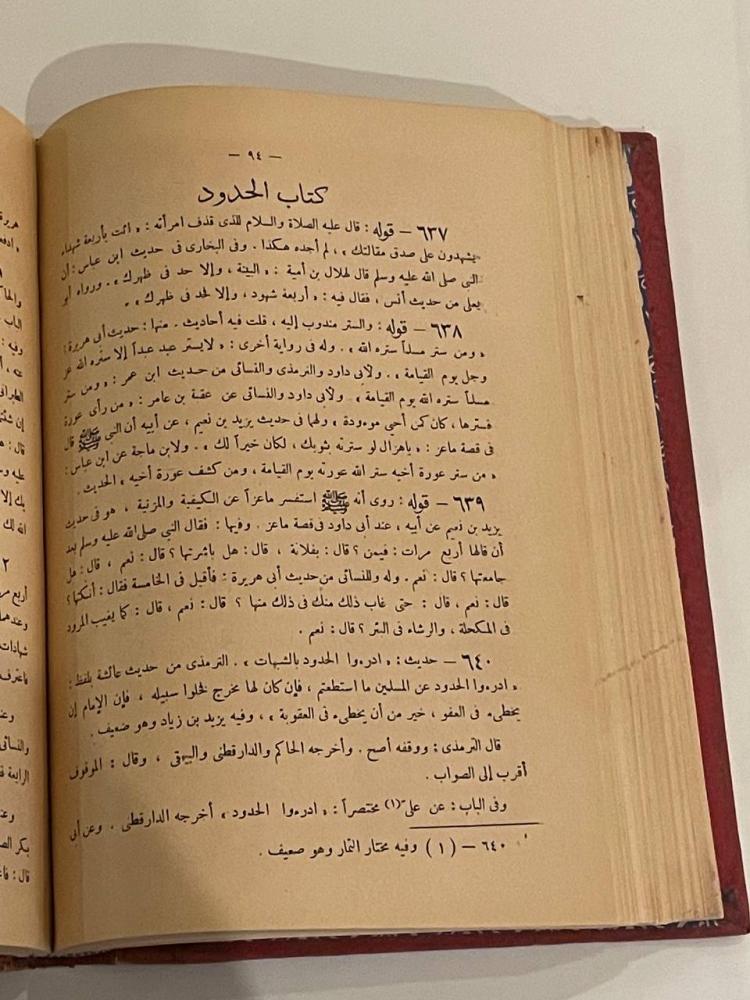 — ٩٤ —
كتاب الحدود
٦٣٧ — قوله : قال عليه الصلاة والسلام للذى قذف امرأته : « ائت بأربعة شهداء
يشهدون على صدق مقالتك » ، لم أجده هكذا . وفى البخارى فى حديث ابن عباس : أن
النبى صلى الله عليه وسلم قال لهلال بن أمية : « البينة ، وإلا حد فى ظهرك » . ورواه أبو
يعلى من حديث أنس ، فقال فيه : « أربعة شهود ، وإلا لحد فى ظهرك » .
٦٣٨ — قوله : والستر مندوب إليه ، قلت فيه أحاديث . منها : حديث أبى هريرة :
« ومن ستر مسلماً ستره الله » . وله فى رواية أخرى : « لايستر عبد عبداً إلا ستره الله عز
وجل يوم القيامة » . ولابى داود والترمذى والنسائى من حديث ابن عمر : « ومن ستر
مسلماً ستره الله يوم القيامة » . ولابى داود والنسائى عن عقبة بن عامر : « من رأى عورة
فسترها ، كان كمن أحيى موءودة » ولهما فى حديث يزيد بن نعيم ، عن أبيه أن النبى ﷺ قال
فى قصة ماعز : « ياهزال لو سترته بثوبك ، لكان خيراً لك » . ولابن ماجة عن ابن عباس :
« من ستر عورة أخيه ستر الله عورته يوم القيامة ، ومن كشف عورة أخيه » الحديث .
٦٣٩ — قوله : روى أنه ﷺ استفسر ماعزاً عن الكيفية والمزنية ، هو فى حديث
يزيد بن نعيم عن أبيه ، عند أبى داود فى قصة ماعز . وفيها : فقال النبى صلى الله عليه وسلم بعد
أن قالها أربع مرات : فبمن ؟ قال : بفلانة ، قال : هل باشرتها ؟ قال : نعم ، قال : هل
جامعتها ؟ قال : نعم . وله وللنسائى من حديث أبى هريرة : فأقبل فى الخامسة فقال : أنكتها ؟
قال : نعم ، قال : حتى غاب ذلك منك فى ذلك منها ؟ قال : نعم ، قال : كما يغيب المرود
فى المكحلة ، والرشاء فى البئر ؟ قال : نعم .
٦٤٠ — حديث : « ادرءوا الحدود بالشبهات » . الترمذى من حديث عائشة بلفظ :
« ادرءوا الحدود عن المسلمين ما استطعتم ، فإن كان لها مخرج فخلوا سبيله ، فإن الإمام إن
يخطىء فى العفو ، خير من أن يخطىء فى العقوبة » ، وفيه يزيد بن زياد وهو ضعيف .
قال الترمذى : ووقفه أصح . وأخرجه الحاكم والدارقطنى والبيهقى ، وقال : الموقوف
أقرب إلى الصواب .
وفى الباب : عن على (١) مختصراً : « ادرءوا الحدود » أخرجه الدارقطنى . وعن أبى
٦٤٠ — (١) وفيه مختار التمار وهو ضعيف .